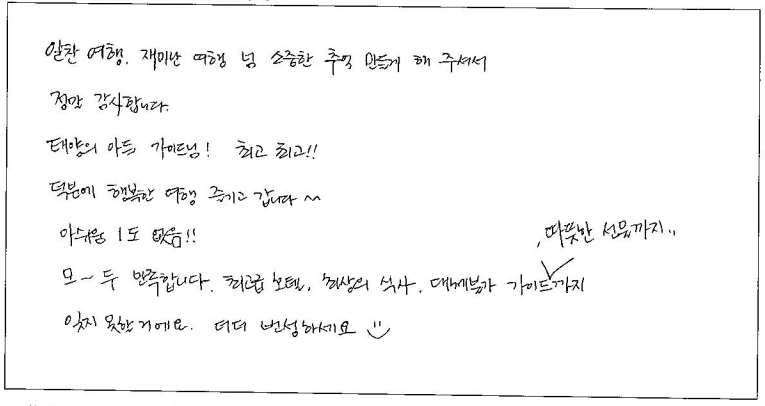 알찬 여행, 재미난 여행 넘 소중한 추억 만들게 해 주셔서
정말 감사합니다.
태양의 아들 가이드님! 최고 최고!!
덕분에 행복한 여행 즐기고 갑니다 ~
아쉬움 1도 없음!!
, 따뜻한 선물까지..
모~두 만족합니다. 최고급 호텔, 최상의 식사, 가이드까지
잊지 못할거에요. 더더 번성하세요